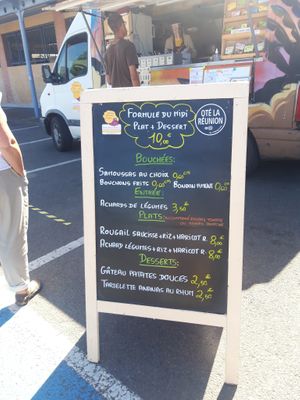 FORMULE DU MIDI
PLAT + DESSERT
10,00€
OTÉ LA
RÉUNION
BOUCHÉES:
SAMOUSSAS AU CHOIX 0,60€
BOUCHONS FRITS 0,60€ BONBON PIMENT 0,60€
ENTRÉE:
ACHARDS DE LÉGUMES 3,50€
PLATS:
ROUGAIL SAUCISSE + RIZ + HARICOT R. 8,00€
ACHARD LÉGUMES + RIZ + HARICOT R. 8,00€
DESSERTS:
GÂTEAU PATATES DOUCES 2,50€
TARTELETTE ANANAS AU RHUM 2,50€